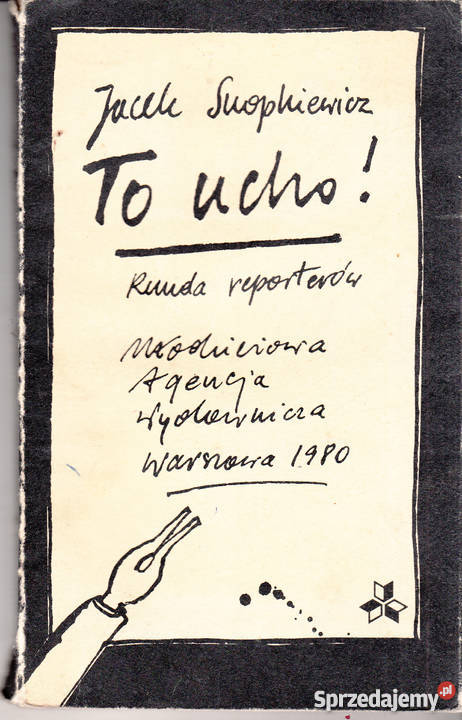 Jacek Snopkiewicz
To ucho!
Runda reporterów
Młodzieżowa
Agencja
Wydawnicza
Warszawa 1980
Sprzedajemy.pl